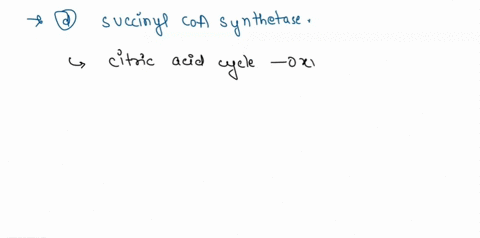 → (d) succinyl CoA synthetase.
↳ citric acid cycle — oxi